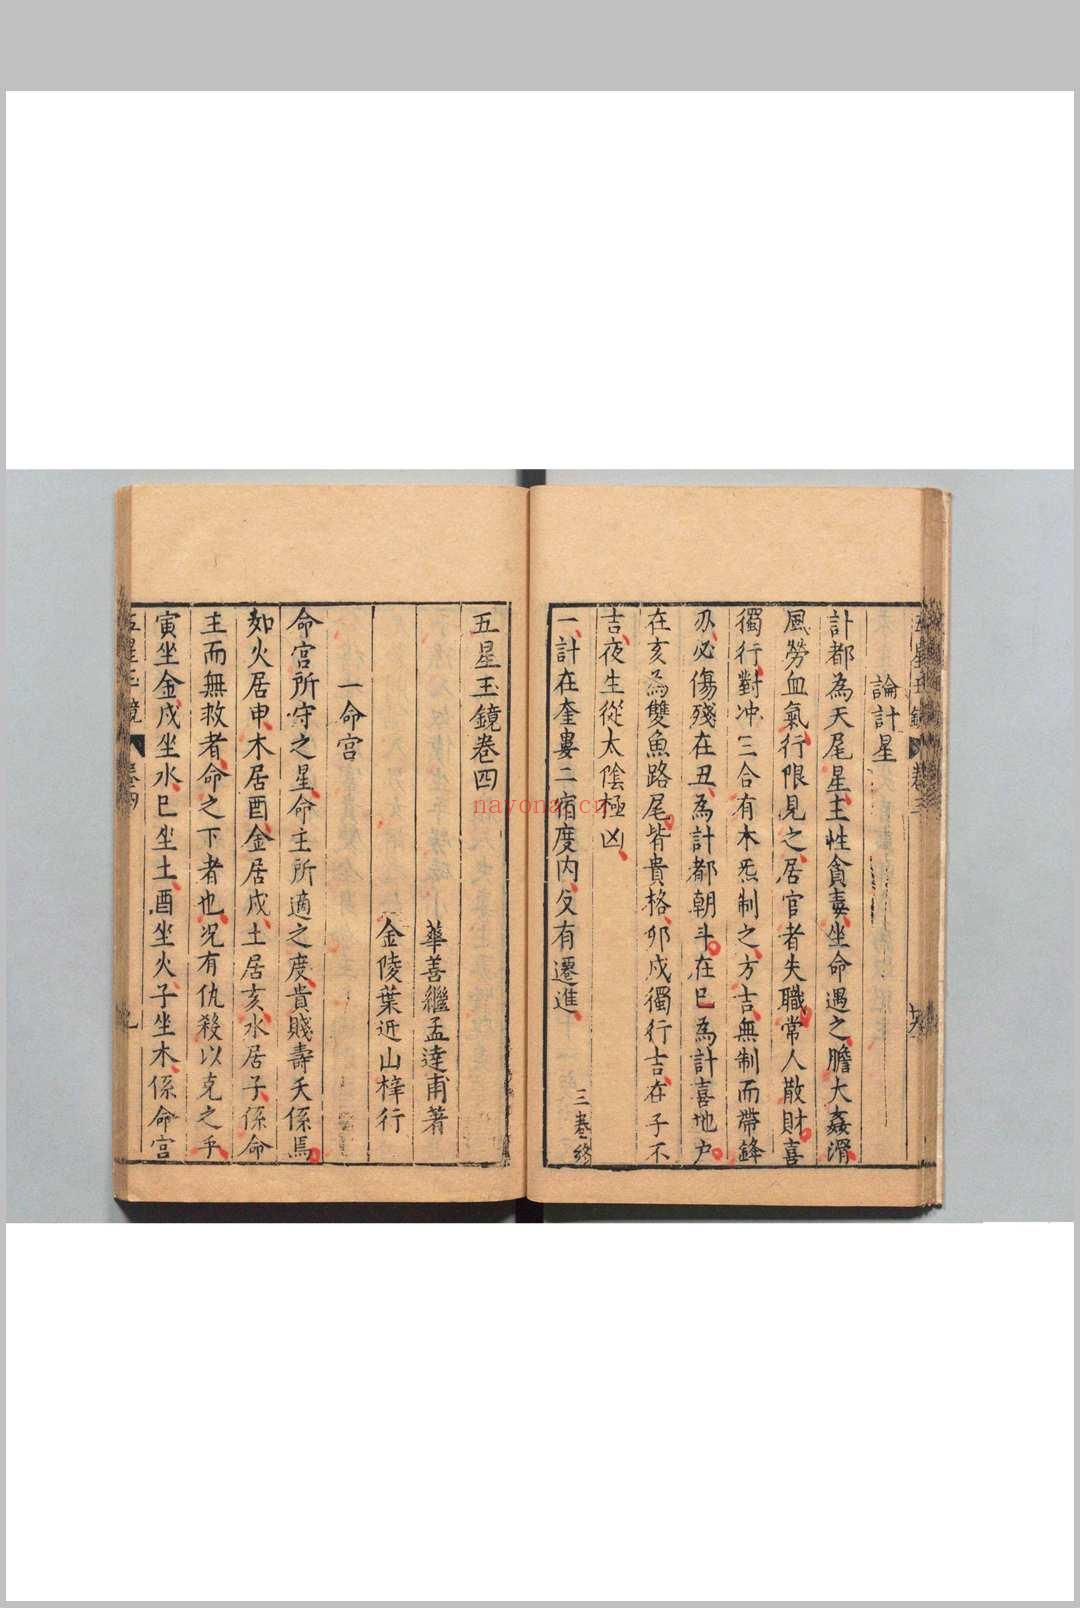 論計星
計都為天尾星主性貪毒坐命遇之膽大姦滑
風勞血氣行限見之居官者失職常人散財喜
獨行對冲三合有木炁制之方吉無制而帶鋒
刃必傷殘在丑為計都朝斗在巳為計喜地户
在亥為雙魚路尾皆貴格卯戍獨行吉在子不
吉夜生從太陰極凶
一計在奎婁二宿度内反有遷進
三巻終
五星玉鏡卷四
華善繼孟達甫著
金陵葉近山梓行
一命宮
命宮所守之星命主所適之度貴賤壽夭係焉
如火居申木居酉金居戍土居亥水居子係命
主而無救者命之下者也况有仇殺以克之乎
寅坐金戍坐水巳坐土酉坐火子坐木係命宮
五星玉鏡
卷四
九
卷三
nayona.cn